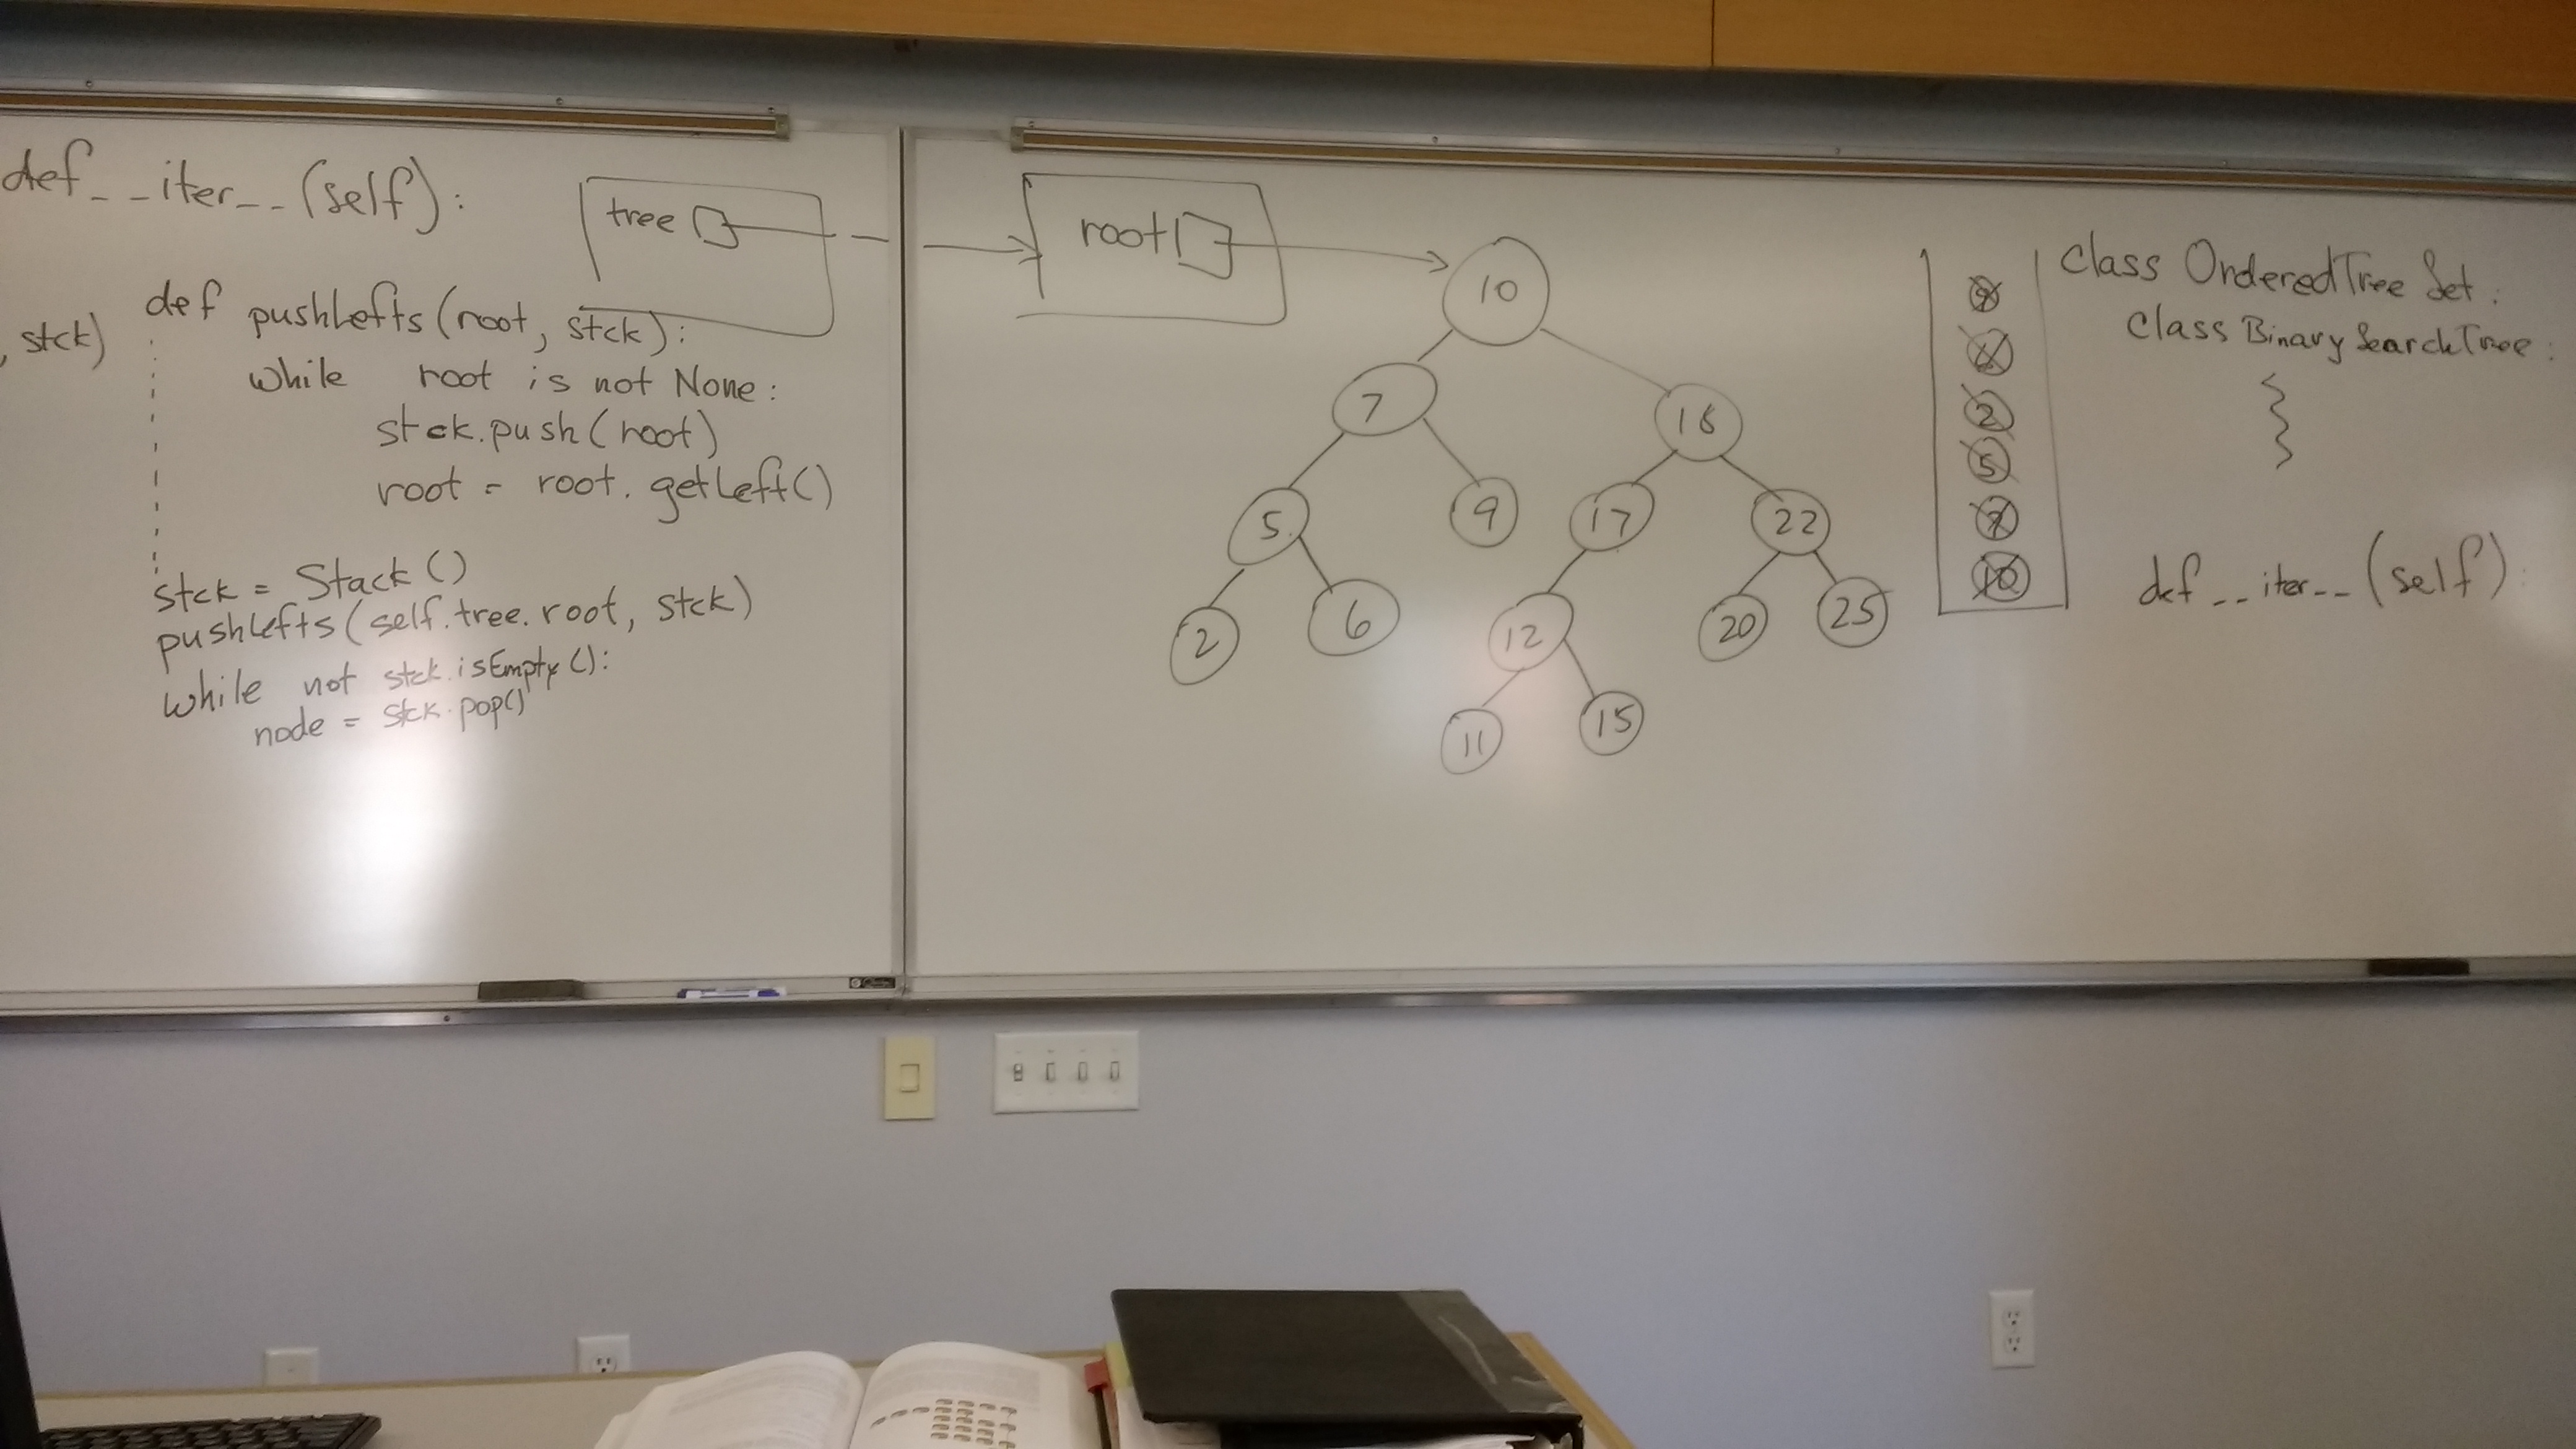 def __iter__(self):
, stck)
def pushLefts(root, stck):
while root is not None:
stck.push(root)
root = root.getLeft()
stck = Stack()
pushLefts(self.tree.root, stck)
while not stck.isEmpty():
node = stck.pop()
tree
root
10
7
18
5
9
17
22
2
6
12
20
25
11
15
2
5
7
10
class OrderedTreeSet:
class BinarySearchTree:
def __iter__(self):